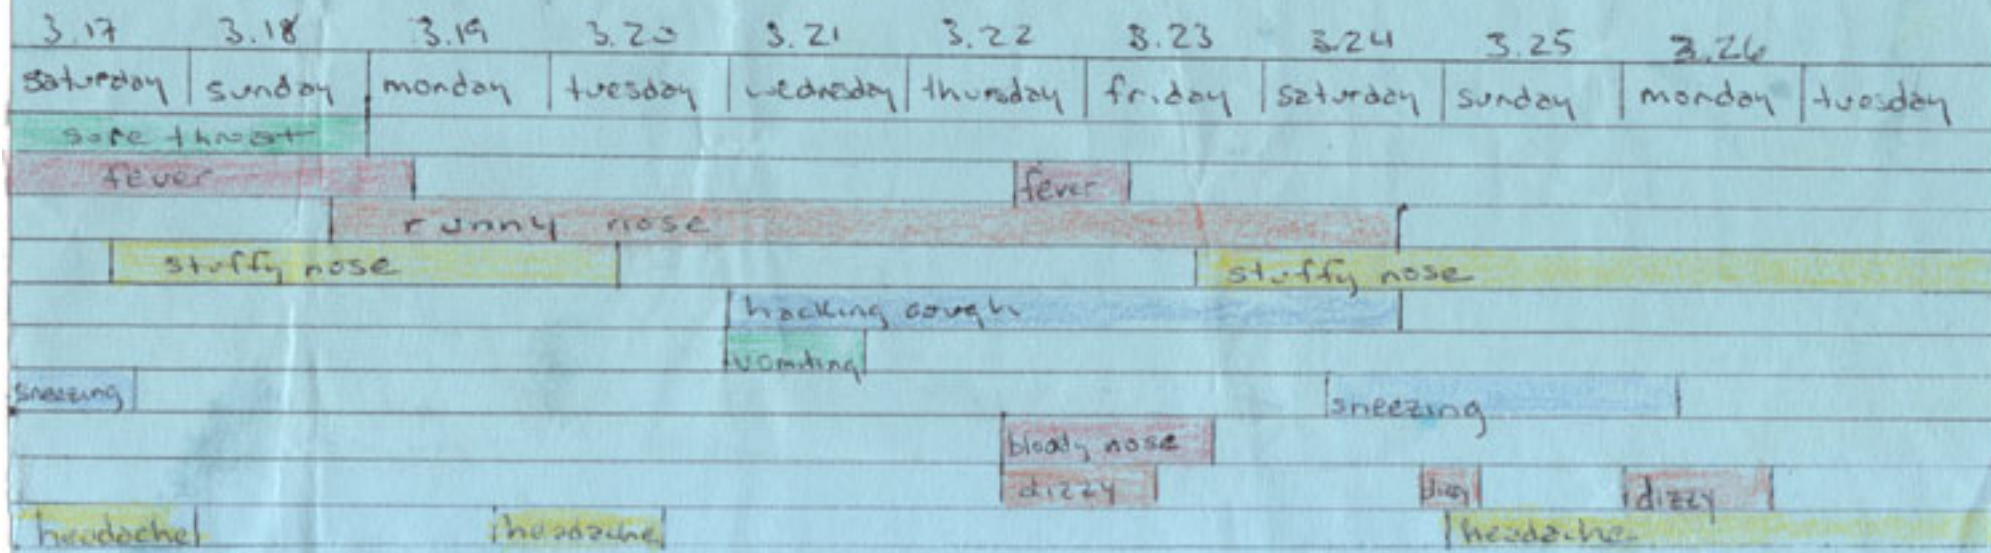 3.17 3.18 3.19 3.20 3.21 3.22 3.23 3.24 3.25 3.26
saturday sunday monday tuesday wednesday thursday friday saturday sunday monday tuesday
sore throat
fever fever
runny nose
stuffy nose stuffy nose
hacking cough
vomiting
sneezing sneezing
bloody nose
dizzy dizzy dizzy
headache headache headache